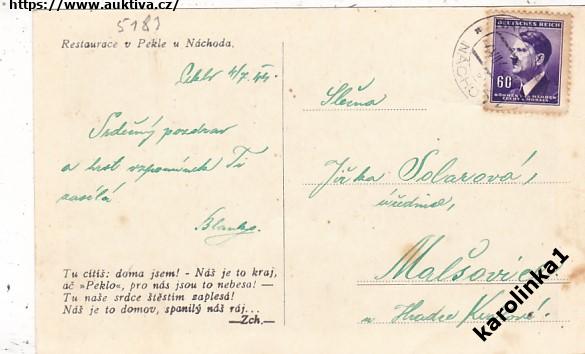 https://www.auktiva.cz/
5183
Restaurace v Pekle u Náchoda.
4/7. 44.
Srdečný pozdrav
a hrst vzpomínek Ti
zasílá
Blanka.
Tu cítíš: doma jsem! - Náš je to kraj,
ač »Peklo«, pro nás jsou to nebesa! —
Tu naše srdce štěstím zaplesá!
Náš je to domov, spanilý náš ráj...
—Zch.—
DEUTSCHES REICH
60
BÖHMEN U. MÄHREN
ČECHY A MORAVA
NÁCHO
Slečna
Jiřka Solarová,
úřednice,
Malšovice
u Hradce Králové.
karolinka1